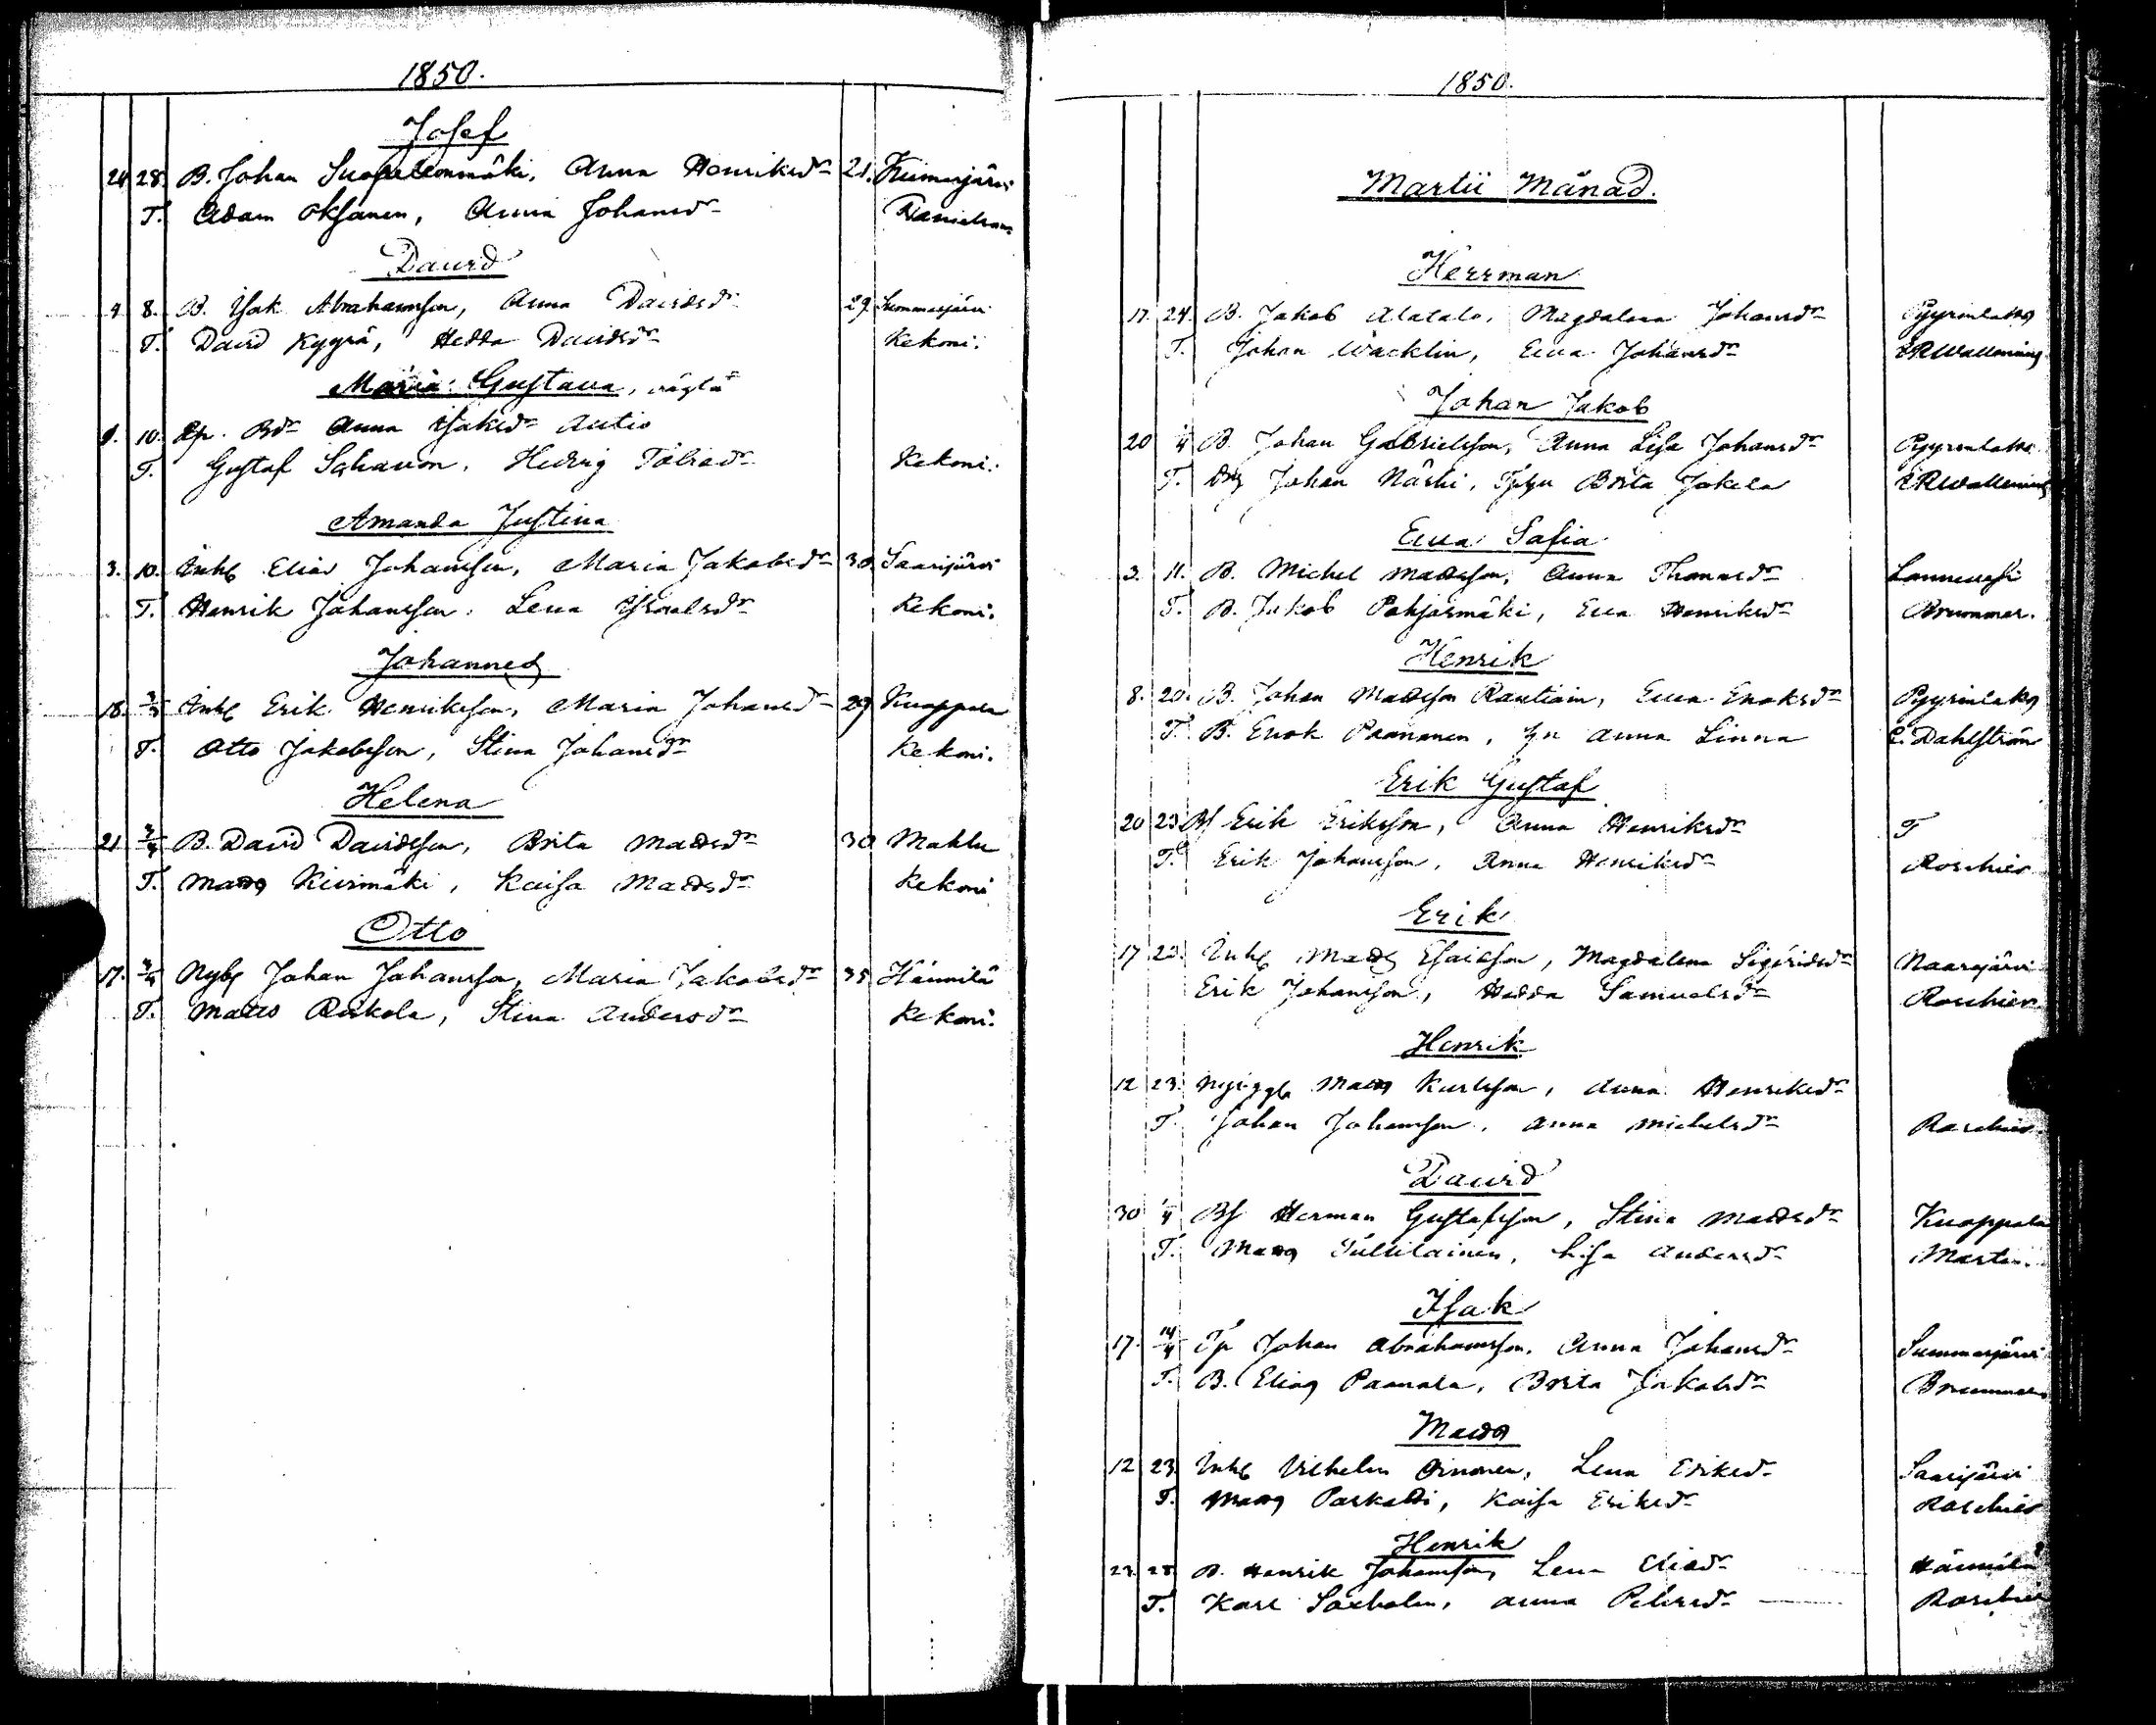 1850.
Josef
24 28. B. Johan Suopellonmäki, Anna Henriksdr 21. Kiimasjärvi
T. Adam Oksanen, Anna Johansdr
David
4 8. B. Isak Abrahamsson, Anna Davidsdr 29 Summasjärvi
T. David Kyyrä, Hedda Davidsdr Kekoni.
Maria Gustava, oägta
9. 10. Anna Isaksdr Autio
T. Gustaf Hedvig Kekoni.
Amanda Justina
3. 10. Inhs Elias Johansson, Maria Jakobsdr 30. Saarijärvi
T. Henrik Johansson, Lena Israelsdr Kekoni.
Johannes
18. 3/3 Inhs Erik Henriksson, Maria Johansdr 29 Kuoppala
T. Otto Jakobsson, Stina Johansdr Kekoni.
Helena
21 3/4 B. David Davidsson, Brita Mattsdr 30 Mahlu
T. Matts Kivimäki, Kaisa Mattsdr Kekoni
Otto
17. 3/4 Nybs Johan Johansson, Maria Jakobsdr 35 Hännilä
T. Matts Stina Andersdr Kekoni.
1850.
Martii Månad.
Herrman
17. 24. B. Jakob Alatalo, Magdalena Johansdr Pyyrinlaks
T. Johan Wacklin, Eva Johansdr
Johan Jakob
20 B. Johan Gabrielsson, Anna Lisa Johansdr Pyyrinlaks
T. Johan Närhi, Brita Jokela
Eva Sofia
3. 11. B. Michel Mattsson, Anna Thomasdr Lannevesi
T. B. Jakob Pohjosmäki, Eva Henriksdr Brummer.
Henrik
8. 20. B. Johan Mattsson Rautiain, Eva Enoksdr Pyyrinlaks
T. B. Enok Paananen, Anna Linna E. Dahlström
Erik Gustaf
20 23 Bs Erik Eriksson, Anna Henriksdr T
T. Erik Johansson, Anna Henriksdr Roschier
Erik
17 23. Inhs Matts Esaiasson, Magdalena Sigfridsdr Naarajärvi
Erik Johansson, Hedda Samuelsdr Roschier
Henrik
12 23. Matts Karlsson, Anna Henriksdr
T. Johan Johansson, Anna Michelsdr Roschier
David
30 Bs Herman Gustafsson, Stina Mattsdr Kuoppala
T. Matts Tullilainen, Lisa Andersdr
Isak
17. 14/4 Tp Johan Abrahamsson, Anna Johansdr Summasjärvi
T. B. Elias Paanala, Brita Jakobsdr Brummer
Matts
12 23. Inhs Vilhelm Oinonen, Lena Eriksdr Saarijärvi
T. Matts Parkatti, Kaisa Eriksdr Roschier
Henrik
23. 28. B. Henrik Johansson, Lena Eliasdr Hännilä
T. Karl Anna Petersdr Roschier